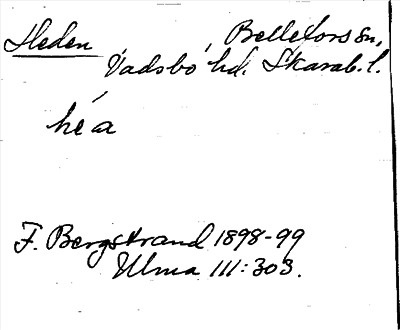 Heden Bellefors sn,
Vadsbo hd. Skarab. l.
hé̀a
F. Bergstrand 1898-99
Ulma 111:303.